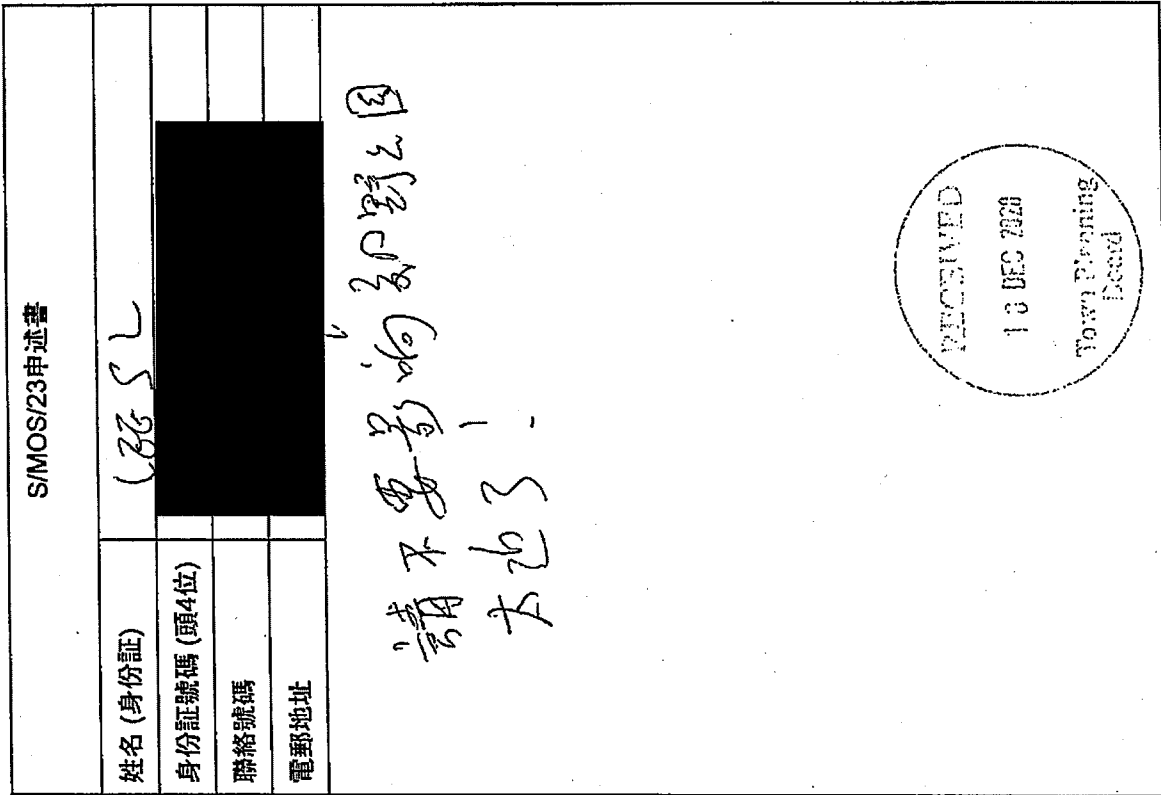 S/MOS/23申述書
姓名 (身份証)
身份証號碼 (頭4位)
聯絡號碼
電郵地址
請不要影响郊野公园
太近了!
RECEIVED
DEC 2020
Town Planning
Board